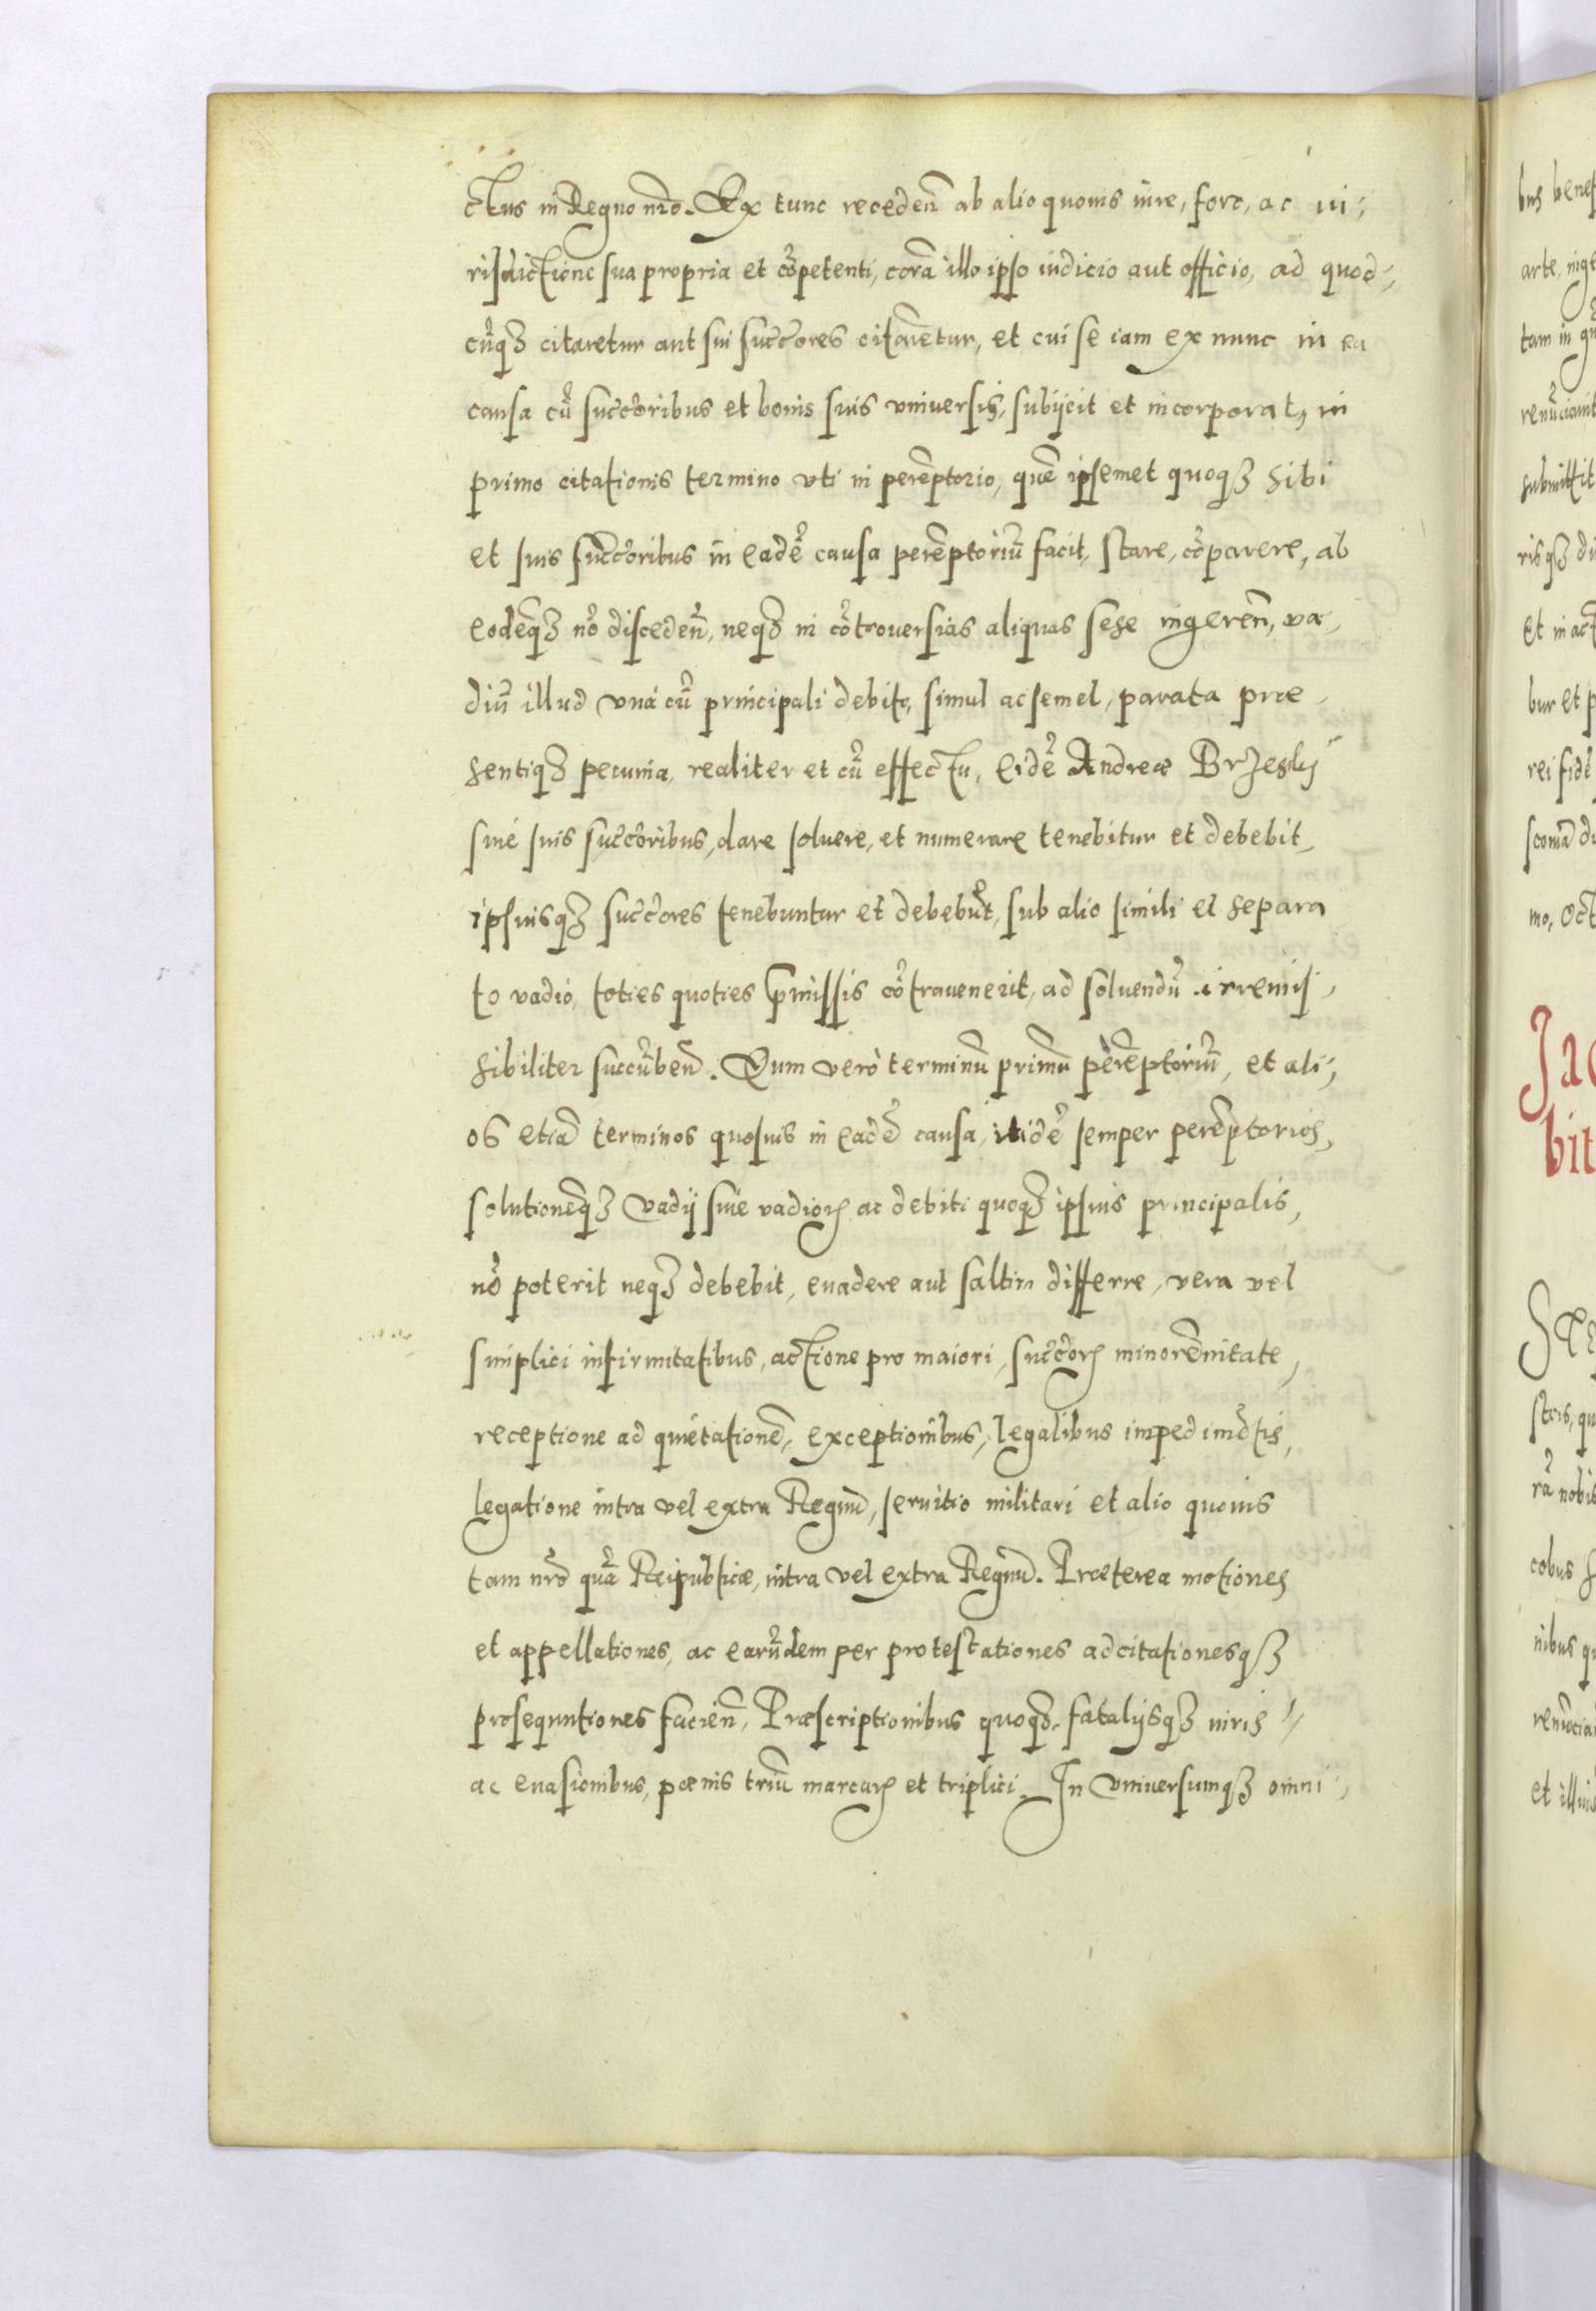 ctus in Regno nr̃o. Ex tunc recedeñ ab alio quouis iure, foro, ac iu-
risdictione sua propria et cõpetenti, corã illo ipso iudicio aut officio, ad quod-
cũqȝ citaretur aut sui succ̃ores citarentur, et cui se iam ex nunc in ea
causa cũ succ̃oribus et bonis suis vniuersis, subijcit et incorporat, in
primo citationis termino vti in perẽptorio, quẽ ipsemet quoqȝ sibi
et suis succ̃oribus in eadẽ causa perẽptoriũ facit, stare, cõparere, ab
eodẽqȝ nõ discedeñ, neqȝ in cõtrouersias aliquas sese ingereñ, va-
diũ illud vná cũ principali debito, simul ac semel, parata præ-
sentiqȝ pecunia, realiter et cũ effectu, eidẽ Andreæ Brzeskÿ
siué suis succ̃oribus, dare soluere, et numerare tenebitur et debebit,
ipsiusqȝ succ̃ores tenebuntur et debebũt, sub alio simili et separa
to vadio, toties quoties p̃missis cõtrauenerit, ad soluendũ irremis-
sibiliter succũbeñ. Quum verò terminũ primũ perẽptoriũ, et ali-
os etiã terminos quosuis in eadẽ causa, itidẽ semper perẽptorios,
solutionẽqȝ vadij siue vadioꝝ ac debiti quoqȝ ipsius principalis,
nõ poterit neqȝ debebit, euadere aut saltim differre, vera vel
simplici infirmitatibus, actione pro maiori, succ̃oꝝ minorẽnitate,
receptione ad quietationẽ, exceptionibus, legalibus impedimẽtis,
legatione intra vel extra Regnũ, seruitio militari et alio quouis
tam nr̃o quã Reipublicæ, intra vel extra Regnũ. Præterea motiones
et appellationes, ac earũdem per protestationes adcitationesqȝ
prosequutiones facieñ, Præscriptionibus quoqȝ, fatalijsqȝ iuris
ac euasionibus, pœnis triũ marcaꝝ et triplici. In vniuersumqȝ omni-